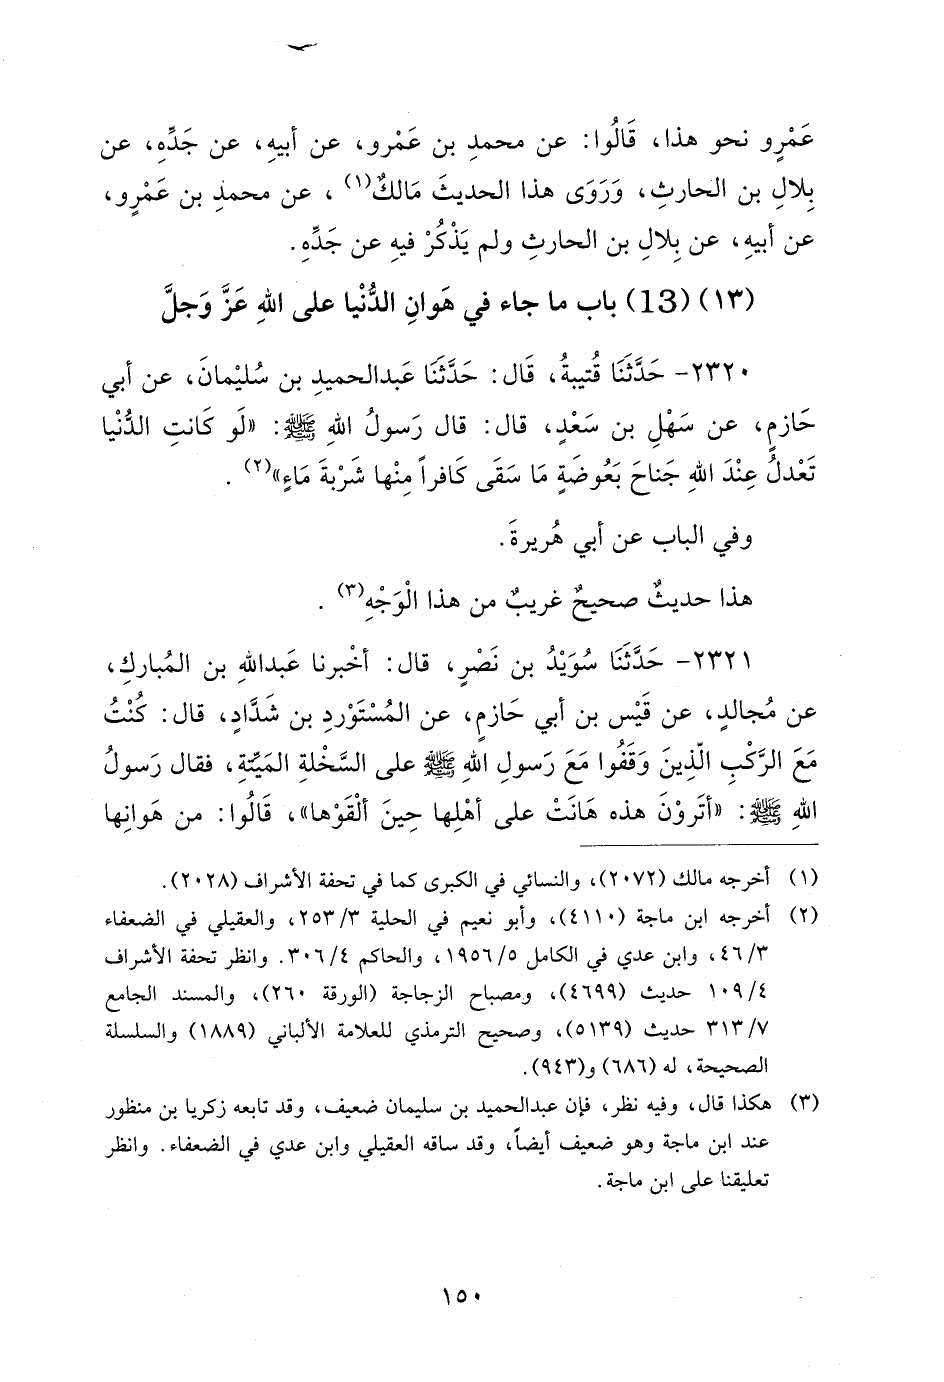 عَمْرٍو نحو هذا، قَالُوا: عن محمدِ بن عَمْرو، عن أبيهِ، عن جَدِّهِ، عن
بِلالِ بن الحارثِ، وَرَوَى هذا الحديثَ مَالكٌ(١) ، عن محمدِ بن عَمْرٍو،
عن أبيهِ، عن بِلالِ بن الحارثِ ولم يَذْكُرْ فيهِ عن جَدِّهِ.
(١٣) (13) باب ما جاء في هَوانِ الدُّنْيا على اللهِ عَزَّ وَجلَّ
٢٣٢٠- حَدَّثَنَا قُتيبةُ، قَال: حَدَّثَنَا عَبدالحميدِ بن سُليْمانَ، عن أبي
حَازمٍ، عن سَهْلِ بن سَعْدٍ، قال: قال رَسولُ اللهِ ﷺ: «لَو كَانتِ الدُّنْيا
تَعْدلُ عِنْدَ اللهِ جَناحَ بَعُوضَةٍ مَا سَقَى كَافراً مِنْها شَرْبةَ مَاءٍ»(٢) .
وفي الباب عن أبي هُريرةَ.
هذا حديثٌ صحيحٌ غريبٌ من هذا الْوَجْهِ(٣) .
٢٣٢١- حَدَّثَنَا سُوَيْدُ بن نَصْرٍ، قال: أخْبرنا عَبدالله بن المُباركِ،
عن مُجالدٍ، عن قَيْس بن أبي حَازمٍ، عن المُسْتَوْردِ بن شَدَّادٍ، قال: كُنْتُ
مَعَ الرَّكْبِ الّذِينَ وَقَفُوا مَعَ رَسولِ اللهِ ﷺ على السَّخْلةِ المَيِّتةِ، فقال رَسولُ
اللهِ ﷺ: «أتَروْنَ هذه هَانَتْ على أهْلِها حِينَ ألْقَوْها»، قَالُوا: من هَوانِها
(١) أخرجه مالك (٢٠٧٢)، والنسائي في الكبرى كما في تحفة الأشراف (٢٠٢٨).
(٢) أخرجه ابن ماجة (٤١١٠)، وأبو نعيم في الحلية ٣/ ٢٥٣، والعقيلي في الضعفاء
٣/ ٤٦، وابن عدي في الكامل ٥/ ١٩٥٦، والحاكم ٤/ ٣٠٦. وانظر تحفة الأشراف
٤/ ١٠٩ حديث (٤٦٩٩)، ومصباح الزجاجة (الورقة ٢٦٠)، والمسند الجامع
٧/ ٣١٣ حديث (٥١٣٩)، وصحيح الترمذي للعلامة الألباني (١٨٨٩) والسلسلة
الصحيحة، له (٦٨٦) و(٩٤٣).
(٣) هكذا قال، وفيه نظر، فإن عبدالحميد بن سليمان ضعيف، وقد تابعه زكريا بن منظور
عند ابن ماجة وهو ضعيف أيضاً، وقد ساقه العقيلي وابن عدي في الضعفاء. وانظر
تعليقنا على ابن ماجة.
١٥٠